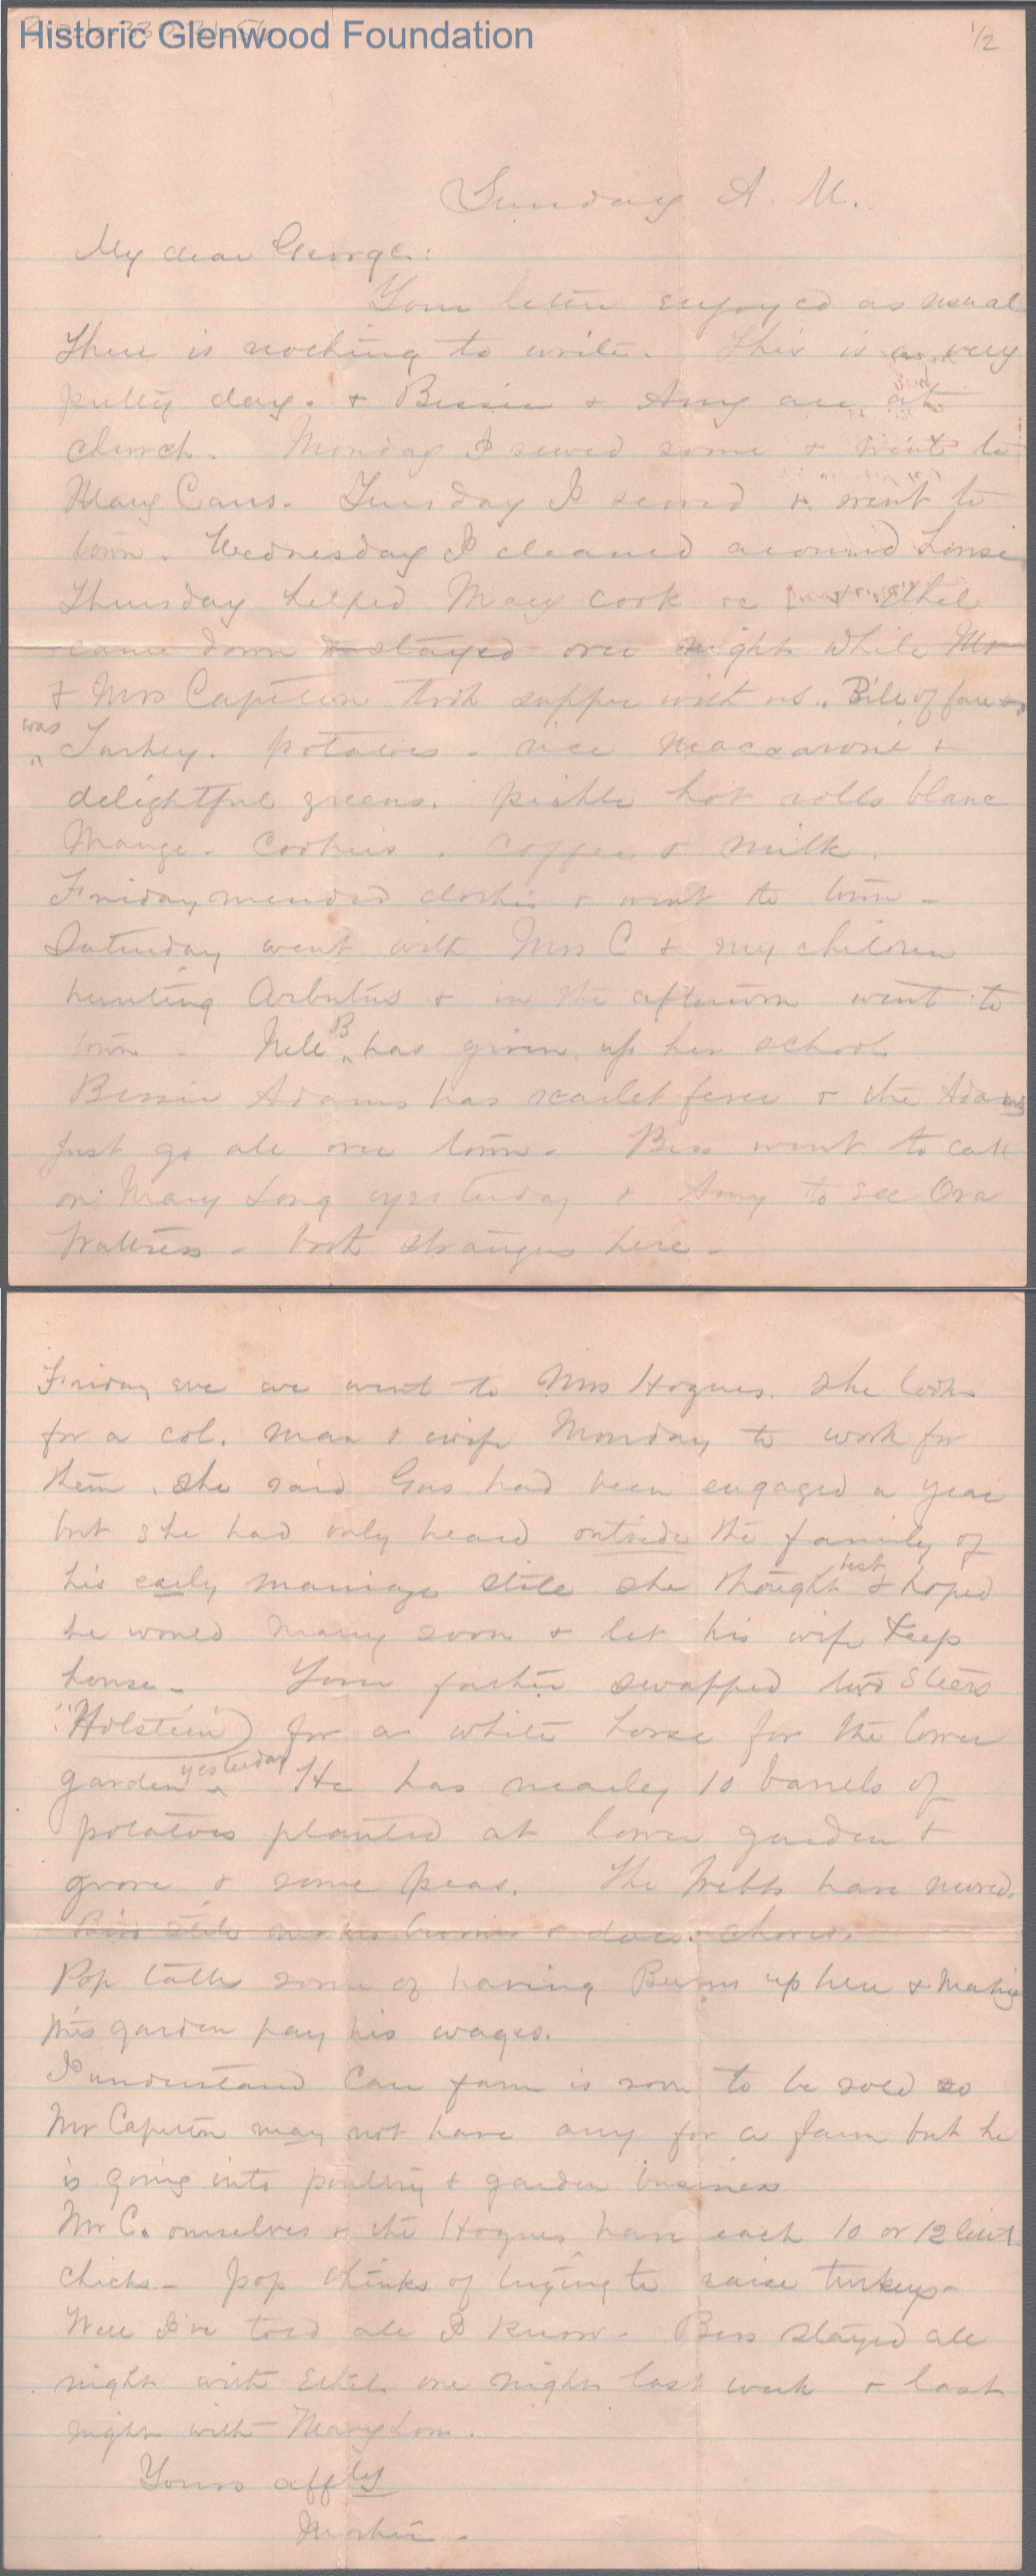 Historic Glenwood Foundation
1/2
Sunday A. M.
My dear George:
Your letter enjoyed as usual
There is nothing to write. This is a very
pretty day. + Bessie + Amy are at
church. Monday I sewed some + went to
Mary Cans. Tuesday I sewed + went to
town. Wednesday I cleaned around house
Thursday helped Mary cook + Ethel
came down + stayed over night while Mr
+ Mrs Caperton took supper with us. Bill of fare
was
Turkey. potatoes - rice maccaroni +
delightful greens. pickle hot rolls blanc
Mange - Cookies. coffee + milk.
Friday mended clothes + went to town -
Saturday went with Mrs C + my children
hunting Arbutus + in the afternoon went to
town - Nell B has given up her school
Bessie Adams has scarlet fever + the Adams
just go all over town - Bess went to call
on Mary Long yesterday + Amy to see Ora
- both strangers here -
Friday eve we went to Mrs Hognes. She looks
for a col. man + wife Monday to work for
them. She said Gus had been engaged a year
but she had only heard outside the family of
his early marriage still she thought best + hoped
he would marry soon + let his wife keep
house - Your father swapped two steers
"Holstein) for a white horse for the lower
garden yesterday He has nearly 10 barrels of
potatoes planted at lower garden +
grove + some peas. The Webbs have moved.
still makes + does chores.
Pop talks some of having Burns up here + making
this garden pay his wages.
I understand Carr farm is soon to be sold so
Mr Caperton may not have any for a farm but he
is going into poultry + garden business
Mr C. ourselves + the Hognes have each 10 or 12 little
chicks - Pop thinks of trying to raise turkeys -
Well I've told all I know - Bess stayed all
night with Ethel one night last week + last
night with Mary Lou.
Yours affly
Mother -